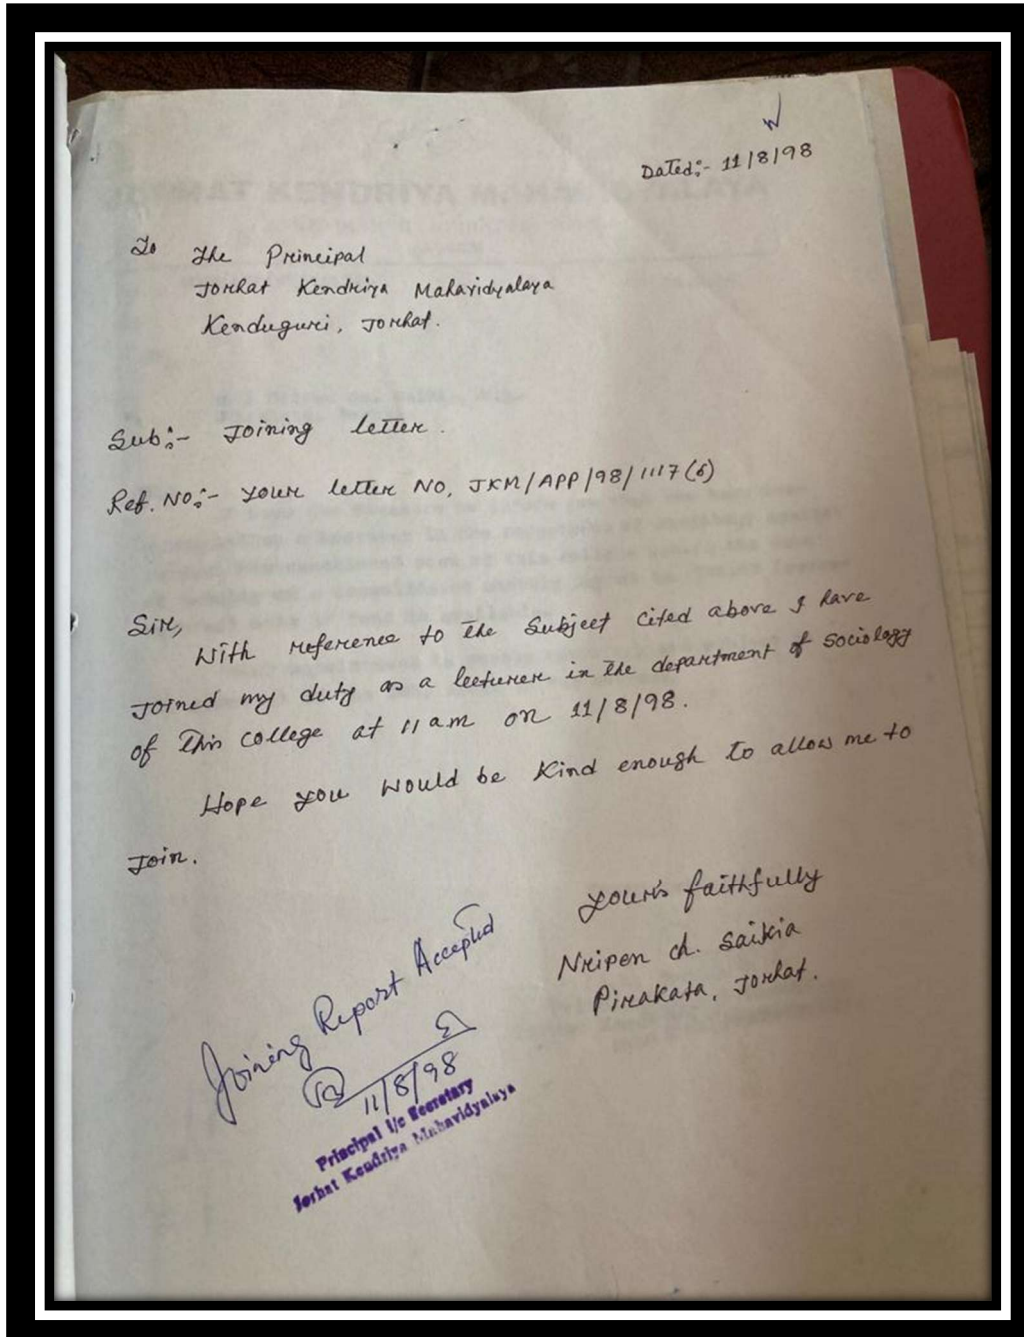 Dated:- 11/8/98
To The Principal
Jorhat Kendriya Mahavidyalaya
Kenduguri, Jorhat.
Sub:- Joining letter.
Ref. No:- Your letter No, JKM/APP/98/1117(6)
Sir,
With reference to the Subject cited above I have
Joined my duty as a lecturer in the department of Sociology
of this college at 11 am on 11/8/98.
Hope you would be kind enough to allow me to
Join.
Your's faithfully
Nripen ch. Saikia
Pirakata, Jorhat.
Joining Report Accepted
11/8/98
Principal i/c Secretary
Jorhat Kendriya Mahavidyalaya